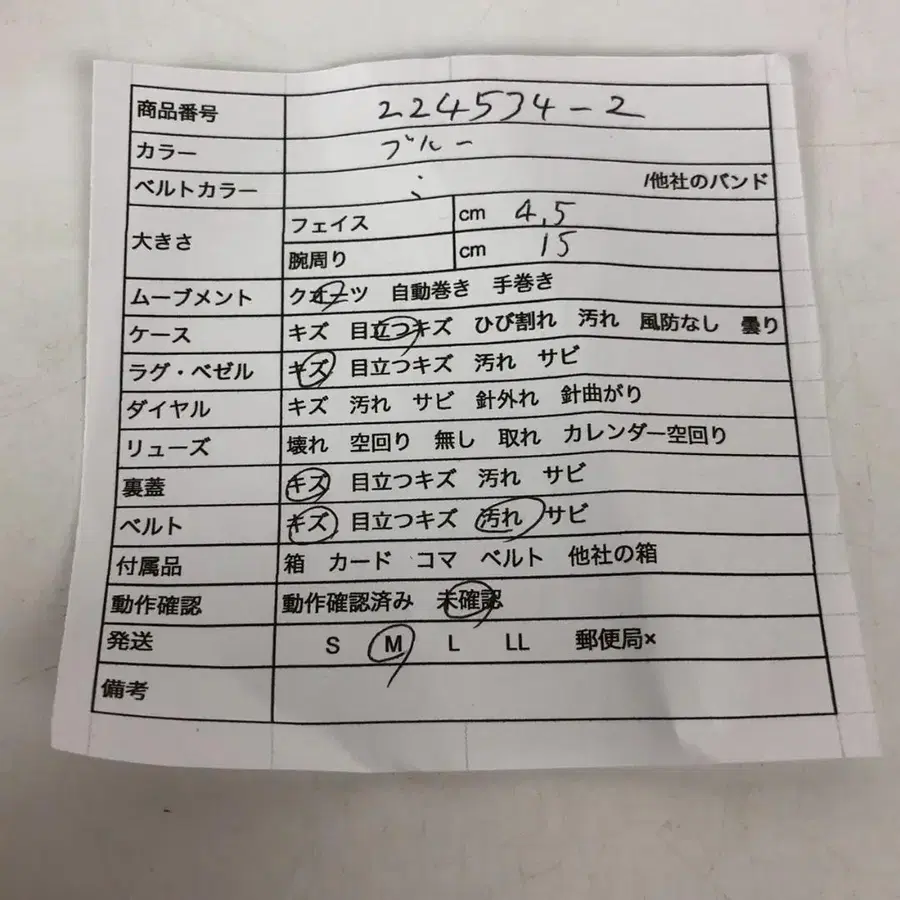 商品番号 224534-2
カラー ブルー
ベルトカラー /他社のバンド
大きさ フェイス cm 4.5
腕周り cm 15
ムーブメント クオーツ 自動巻き 手巻き
ケース キズ 目立つキズ ひび割れ 汚れ 風防なし 曇り
ラグ・ベゼル キズ 目立つキズ 汚れ サビ
ダイヤル キズ 汚れ サビ 針外れ 針曲がり
リューズ 壊れ 空回り 無し 取れ カレンダー空回り
裏蓋 キズ 目立つキズ 汚れ サビ
ベルト キズ 目立つキズ 汚れ サビ
付属品 箱 カード コマ ベルト 他社の箱
動作確認 動作確認済み 未確認
発送 S M L LL 郵便局×
備考